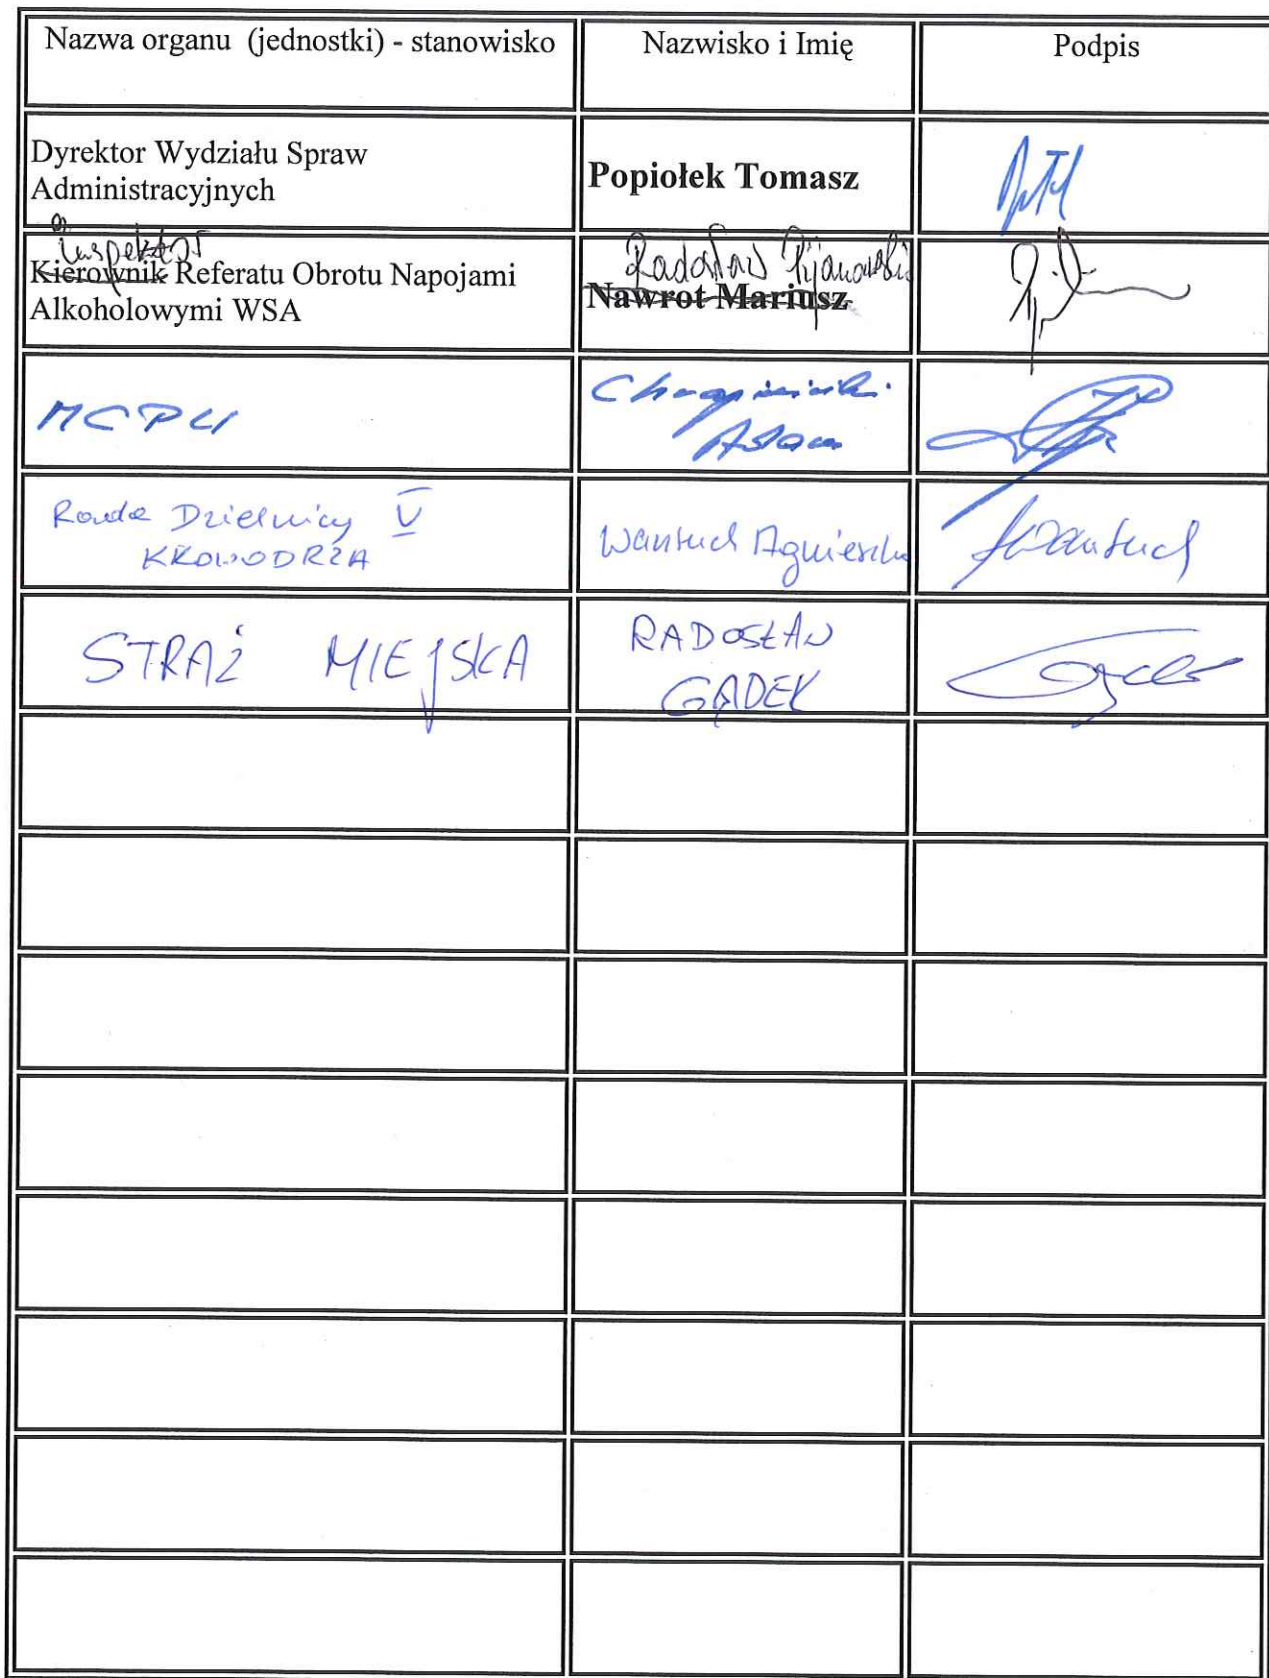 Nazwa organu (jednostki) - stanowisko
Nazwisko i Imię
Podpis
Dyrektor Wydziału Spraw
Administracyjnych
Popiołek Tomasz
Inspektor
Kierownik Referatu Obrotu Napojami
Alkoholowymi WSA
Radosław Pijanowski
Nawrot Mariusz
MCPU
Adam
Rada Dzielnicy V
KROWODRZA
Wantuch Agnieszka
Wantuch
STRAŻ MIEJSKA
RADOSŁAW
GĄDEK